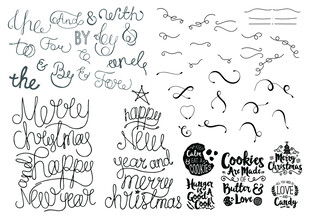 the And & With
To For BY by &
the & By & For and
Merry
Christmas
and happy
New year
happy
New
year and
merry
christmas
Calm
Hunger
is a
Good
Cook
Cookies
Are Made
OF
Butter &
Love
Merry
Christmas
LOVE
Candy